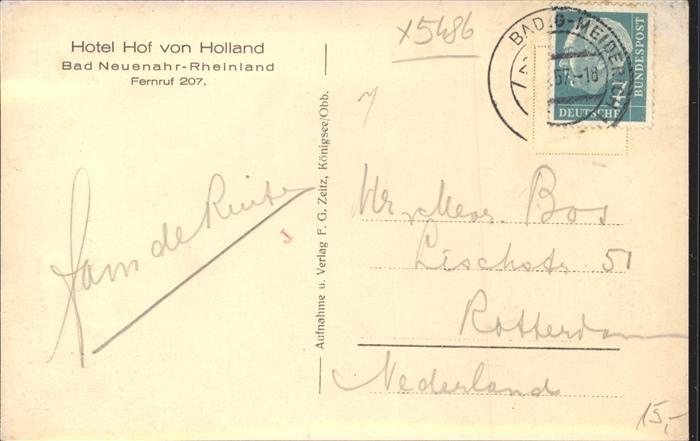 Hotel Hof von Holland
Bad Neuenahr-Rheinland
Fernruf 207.
x5486
BAD G-MEIDERICH
57.-18
DEUTSCHE
BUNDESPOST
Aufnahme u. Verlag F. G. Zeitz, Königsee/Obb.
Fam de Ruiter
J
Mr. Bos
51
Rotterdam
Nederland
15,-